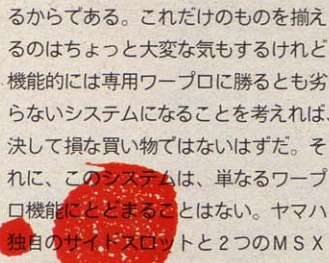 るからである。これだけのものを揃え
るのはちょっと大変な気もするけれど
機能的には専用ワープロに勝るとも劣
らないシステムになることを考えれば、
決して損な買い物ではないはずだ。そ
れに、このシステムは、単なるワープ
ロ機能にとどまることはない。ヤマハ
独自のサイドスロットと2つのMSX